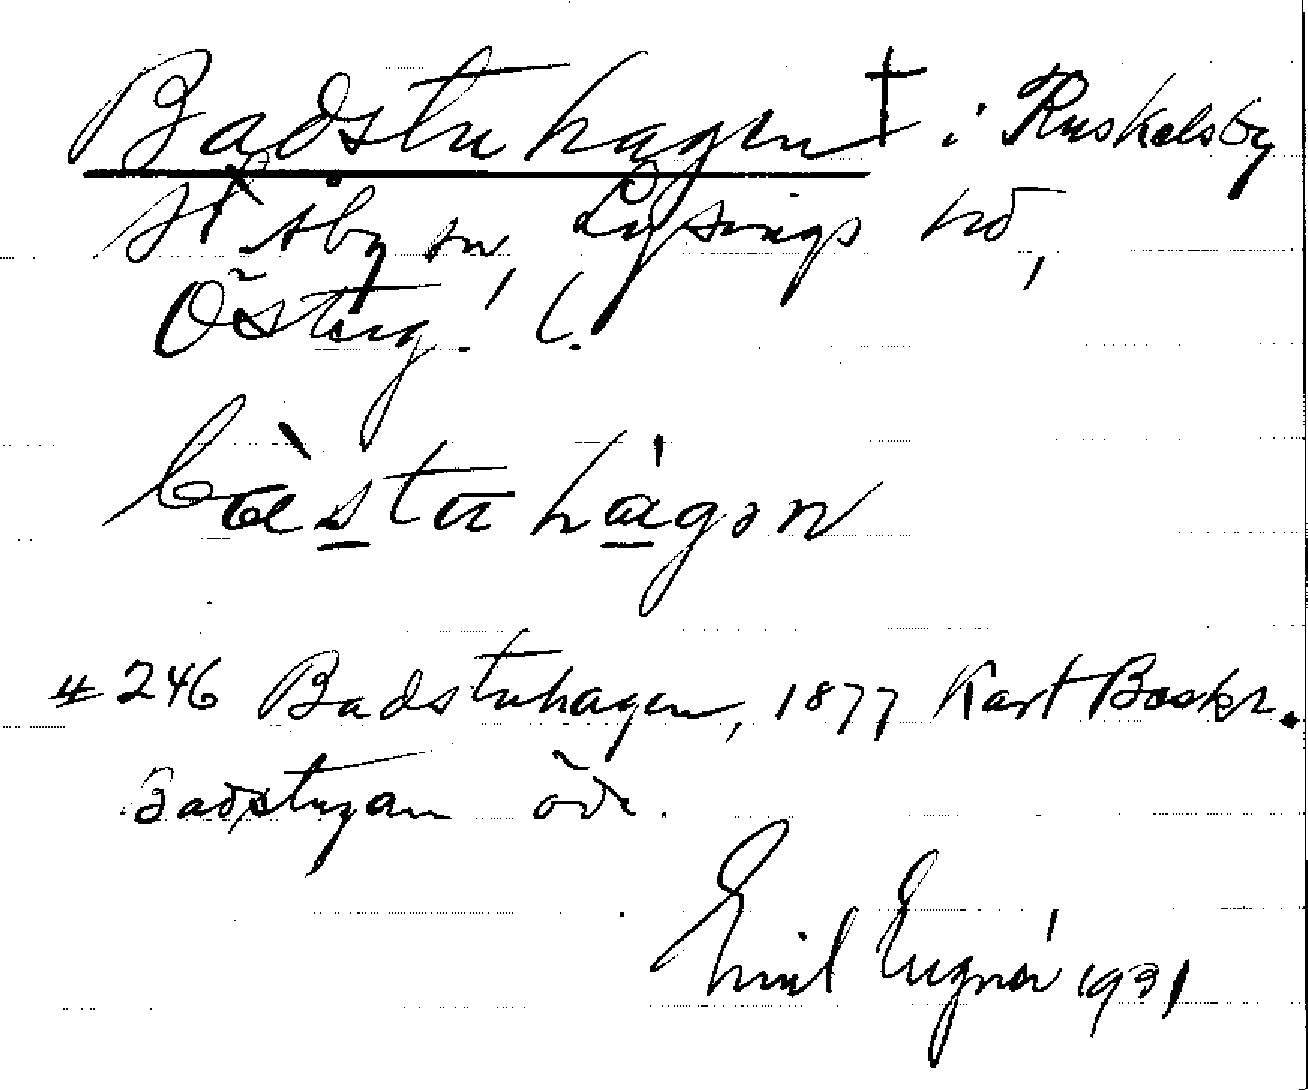 Badstuhagen † i Ruskelsby
St Åby sn, Lysings hd,
Österg. l.
bæ̀stuhágən
# 246 Badstuhagen, 1877 Kart Beskr.
Badstugan öde.
Emil 1931